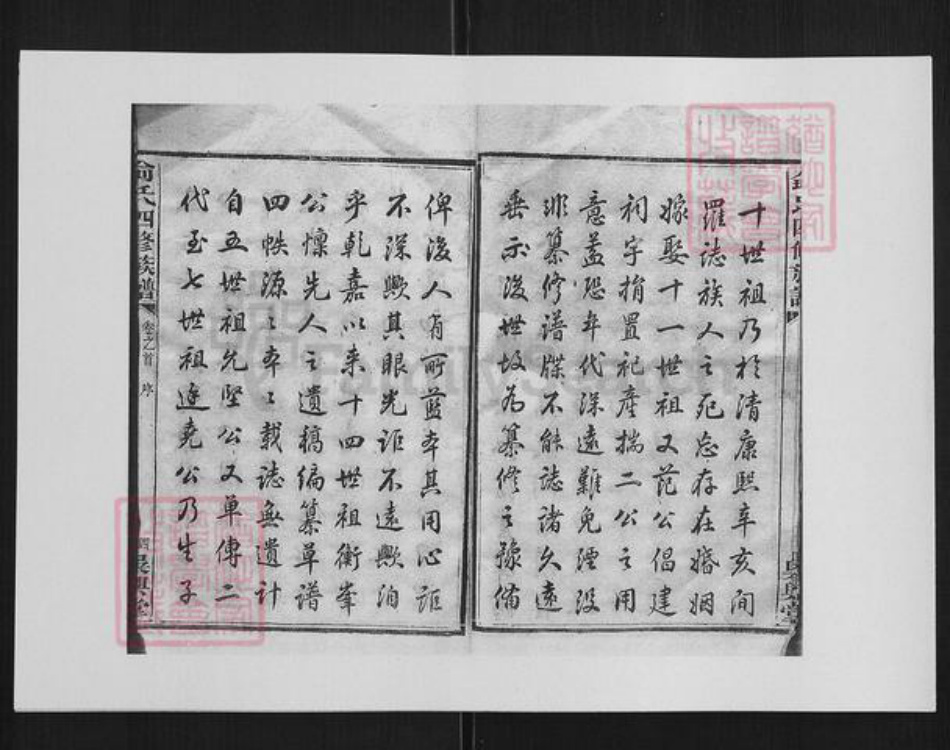 十世祖乃於清康熙辛亥间
羅誌族人之死忘存在婚姻
嫁娶十一世祖又范公倡建
祠宇捐置祀產揣二公之用
意蓋恐年代深遠難免湮没
非纂修譜牒不能誌諸久遠
垂示後世故為纂修之豫備
俾後人有所藍本其用心詎
不深歟其眼光詎不遠歟洎
乎乾嘉以来十四世祖衡峯
公懍先人之遺稿编纂草譜
四帙源々本々载誌無遺计
自五世祖允堅公又单傳二
代至七世祖廷堯公乃生子
俞氏四修族譜
卷之首 序
吳興堂